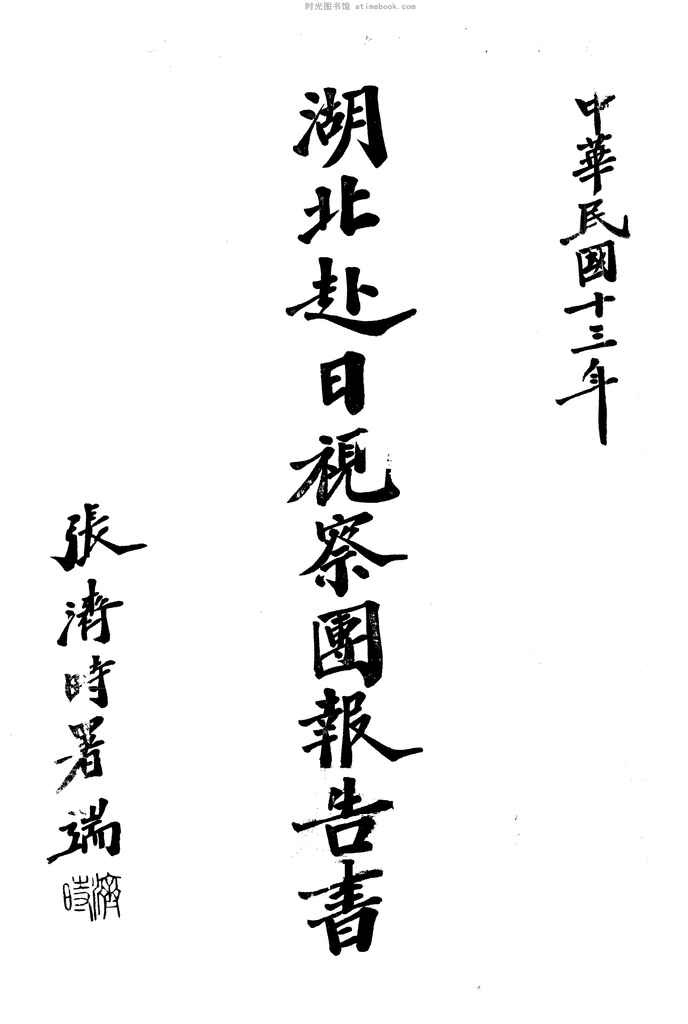 时光图书馆 atimebook.com
中華民國十三年
湖北赴日視察團報告書
張濟時署端
濟時